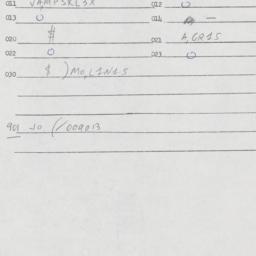 011 VAMPSKL3X 012 O
013 O 014 —
020 $ 021 A,GR15
022 O 023 O
030 $ )MO,L1N15
901 10 (/009013